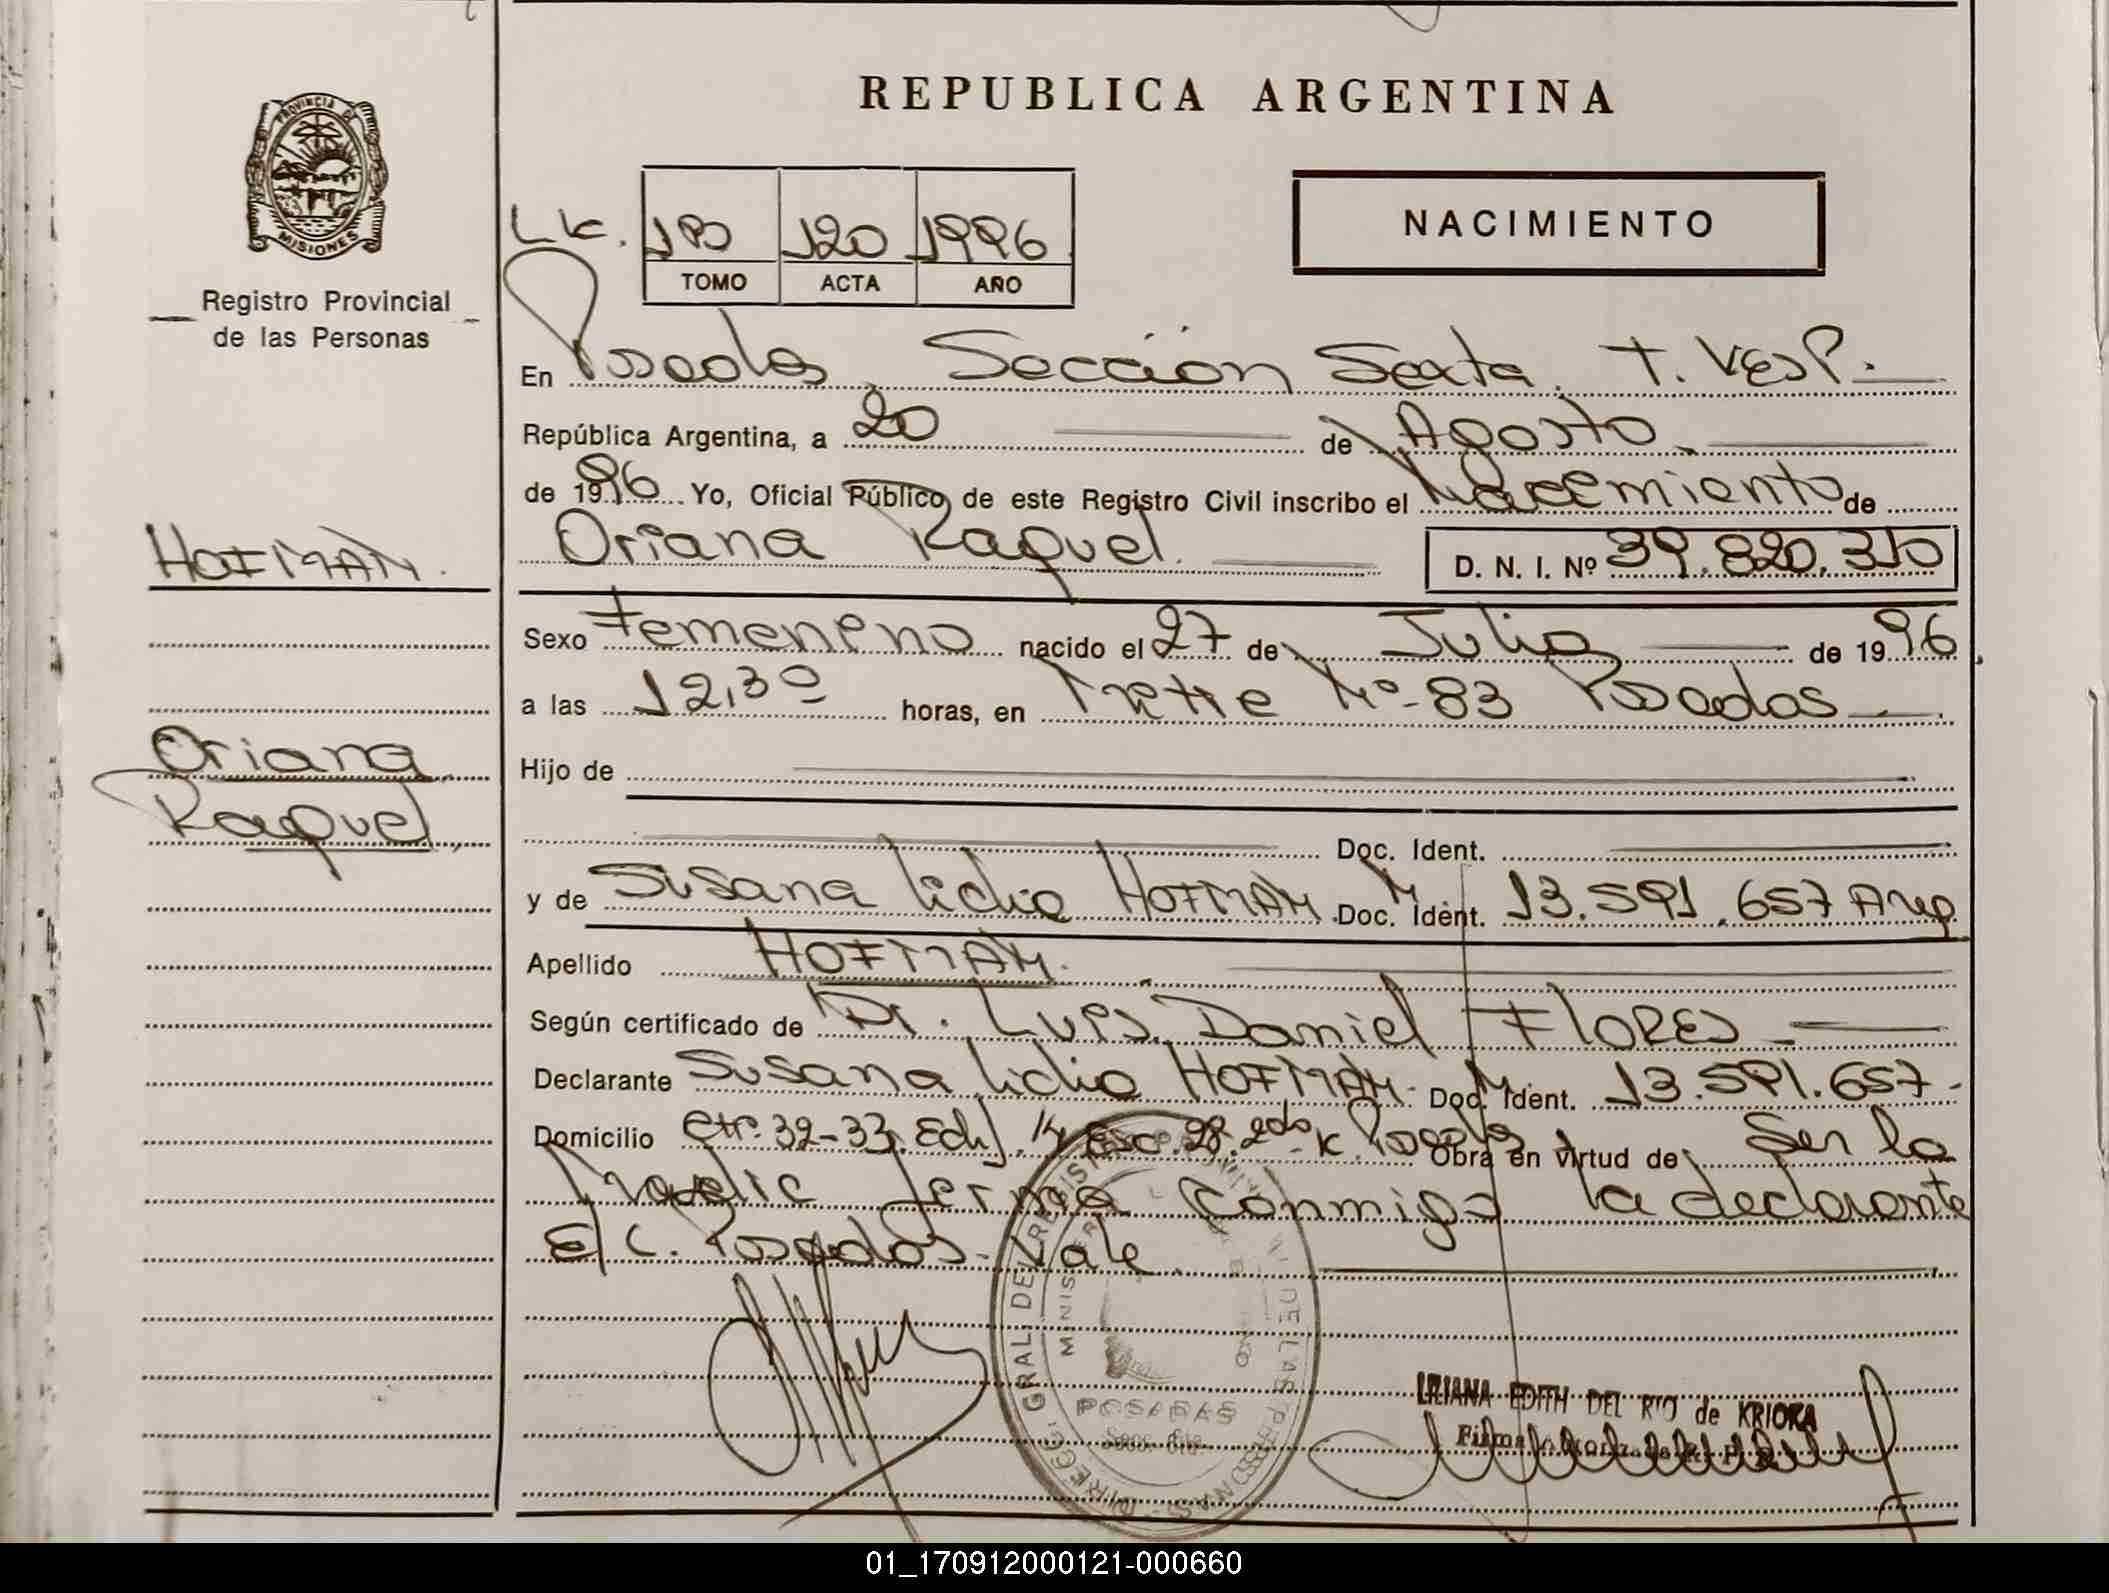 REPUBLICA ARGENTINA
PROVINCIA DE
MISIONES
Registro Provincial
de las Personas
NACIMIENTO
120 1996
TOMO ACTA AÑO
En Posadas, Sección Sexta. T. VESP.
República Argentina, a 20 de Agosto
de 1996 Yo, Oficial Público de este Registro Civil inscribo el Nacimiento de
HOFMAN.
Oriana Raquel. D. N. I. Nº 39.820.310
Sexo Femenino nacido el 27 de Julio de 1996
a las 12,30 horas, en Nº 83 Posadas
Oriana
Raquel
Hijo de
Doc. Ident.
y de Susana Lidia HOFMAN Doc. Ident. 13.591.657 Arg
Apellido HOFMAN.
Según certificado de Dr. Luis Daniel FLORES
Declarante Susana Lidia HOFMAN. Doc. Ident. 13.591.657
Domicilio 32-33. Esc. 28. 2do K. Posadas Obra en virtud de Ser la
Madre firma conmigo la declarante
E/L. Posadas. Vale.
POSADAS
LILIANA EDITH DEL RIO de KRIOKA
01_170912000121-000660